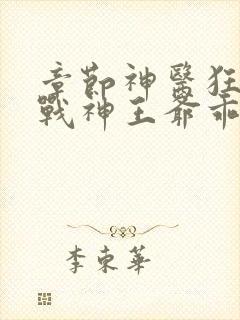 章節神醫狂
戰神王爺乖
李東華